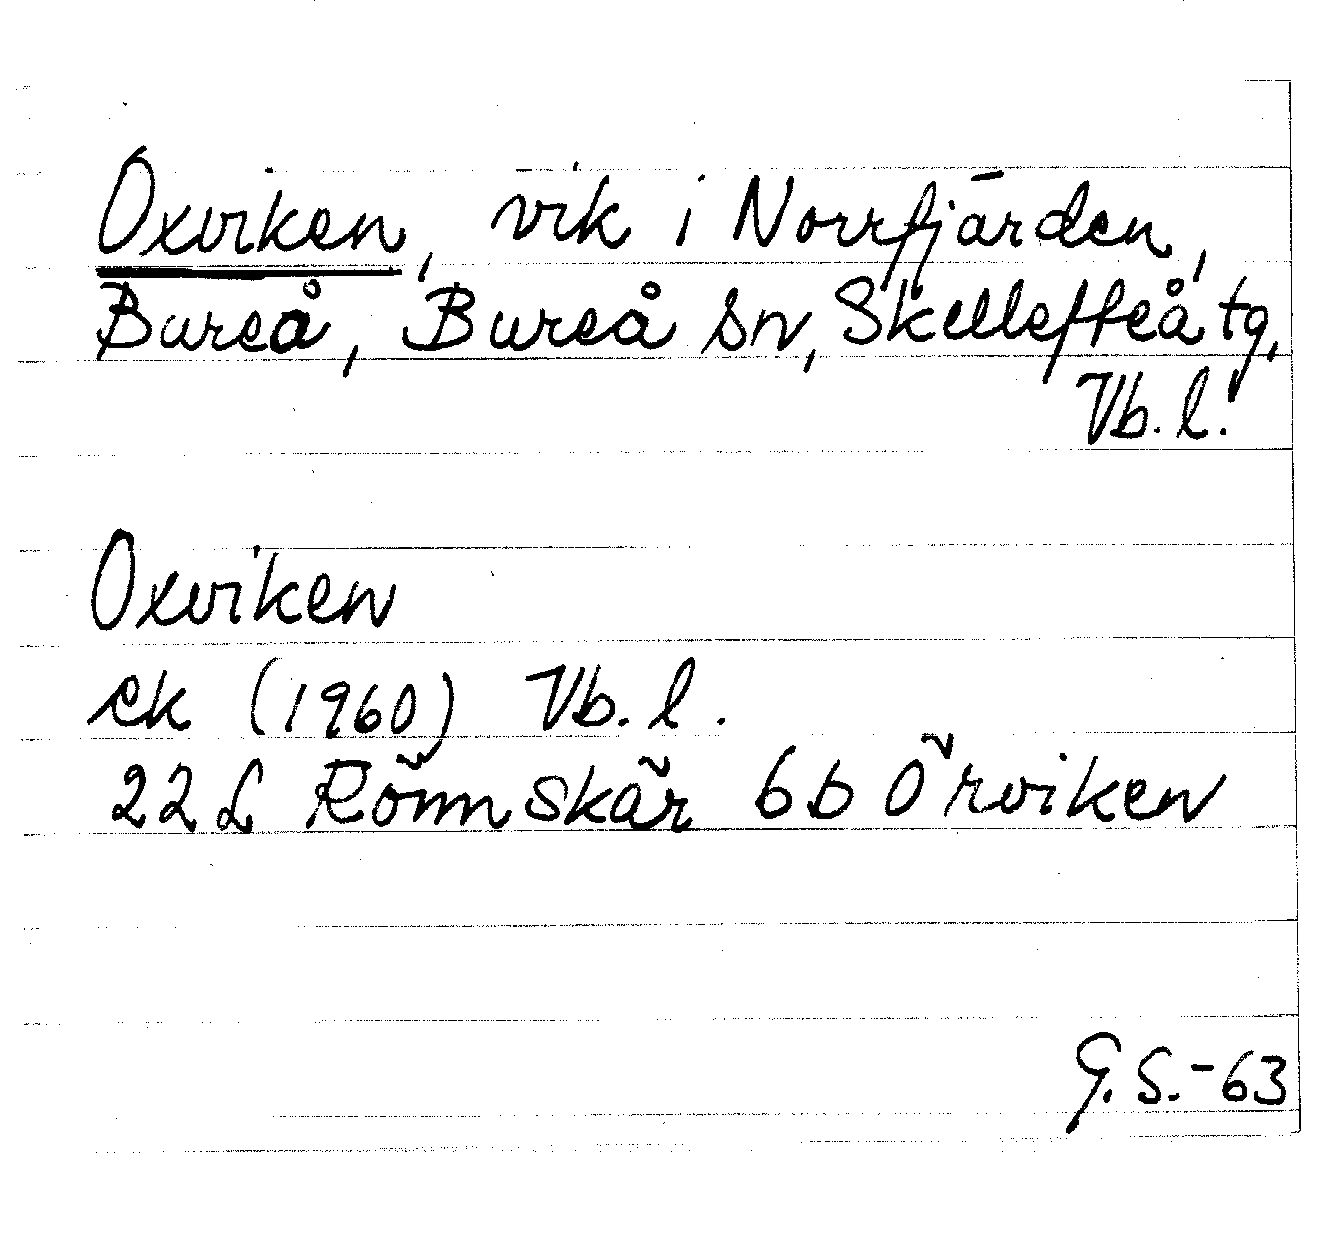 Oxviken, vik i Norrfjärden,
Bureå, Bureå sn, Skellefteå tg,
Vb. l.
Oxviken
ek (1960) Vb. l.
22 L Rönnskär 6b Örviken
G. S. -63